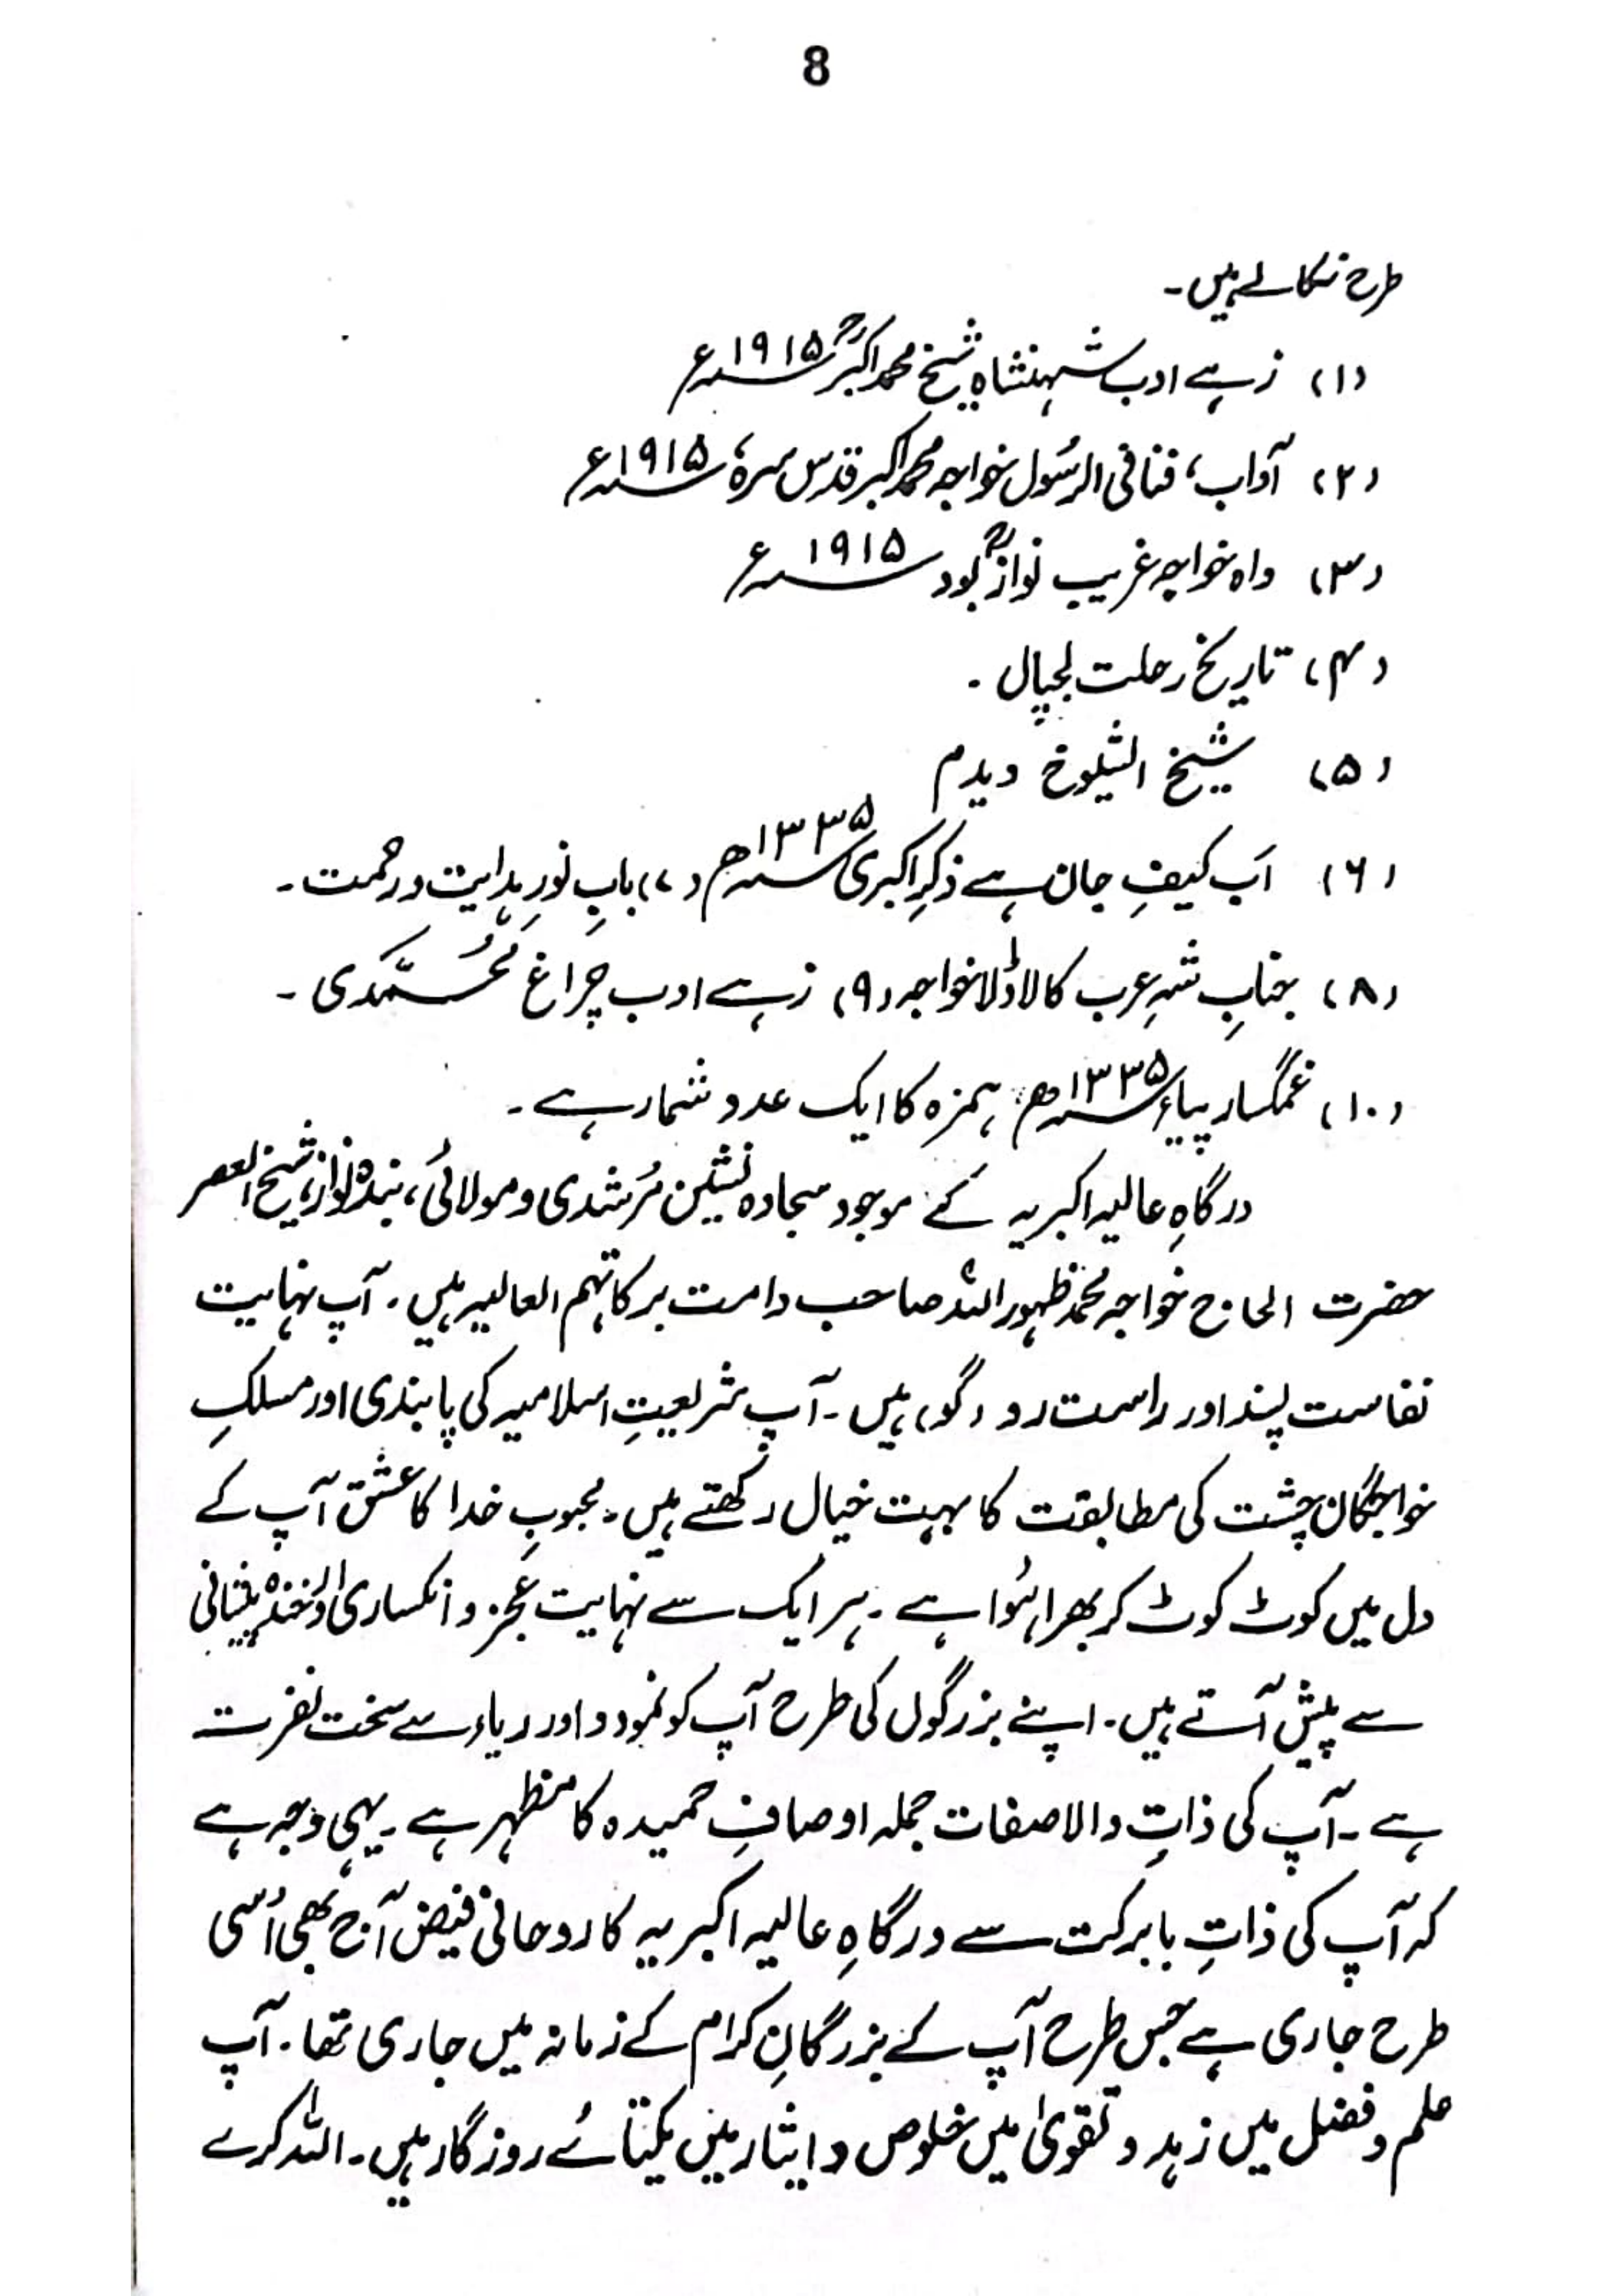 8
طرح نکالے ہیں۔
(۱) زہے ادب شہنشاہ شیخ محمد اکبرؒ ۱۹۱۵ء
(۲) آداب، فنا فی الرسُول خواجہ محمد اکبر قدس سرہٗ ۱۹۱۵ء
(۳) واہ خواجہ غریب نوازؒ بود ۱۹۱۵ء
(۴) تاریخ رحلت لجپال ۔
(۵) شیخ الشیوخ دیدم
(۶) اَب کیفِ جان ہے ذکرِ اکبری ۱۳۳۵ھ (۷) بابِ نورِ ہدایت و رحمت ۔
(۸) جنابِ شہِ عرب کا لاڈلا خواجہ (۹) زہے ادب چراغ محُمّدی ۔
(۱۰) غمگسار پیاء ۱۳۳۵ھ ہمزہ کا ایک عدد شمار ہے ۔
درگاہِ عالیہ اکبریہ کے موجود سجادہ نشین مُرشدی و مولائی، بندہ نواز، شیخ العصر
حضرت الحاج خواجہ محمد ظہور اللہ صاحب دامت برکاتہم العالیہ ہیں ۔ آپ نہایت
نفاست پسند اور راست رو (گو) ہیں ۔ آپ شریعتِ اسلامیہ کی پابندی اور مسلکِ
خواجگان چشت کی مطابقت کا بہت خیال رکھتے ہیں ۔ محبوبِ خدا کا عشق آپ کے
دل میں کوٹ کوٹ کر بھرا ہُوا ہے ۔ ہر ایک سے نہایت عجز و انکساری اور خندہ پیشانی
سے پیش آتے ہیں ۔ اپنے بزرگوں کی طرح آپ کو نمود و اور ریاء سے سخت نفرت
ہے ۔ آپ کی ذاتِ والا صفات جملہ اوصافِ حمیدہ کا مظہر ہے ۔ یہی وجہ ہے
کہ آپ کی ذاتِ بابرکت سے درگاہِ عالیہ اکبریہ کا روحانی فیض آج بھی اُسی
طرح جاری ہے جس طرح آپ کے بزرگانِ کرام کے زمانہ میں جاری تھا ۔ آپ
علم و فضل میں زہد و تقویٰ میں خلوص و ایثار میں یکتائے روزگار ہیں ۔ اللہ کرے